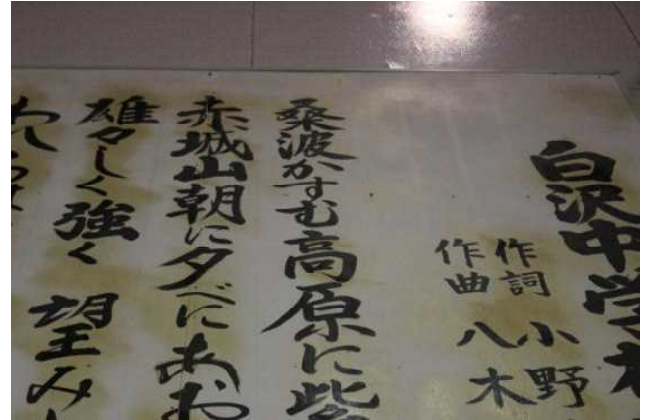 白沢中学校
作詞 小野
作曲 八木
桑波かすむ高原に紫
赤城山朝に夕べにあお
雄々しく強く 望み
われら